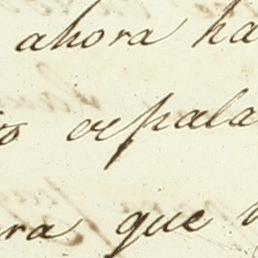 ahora ha
espala
ra que